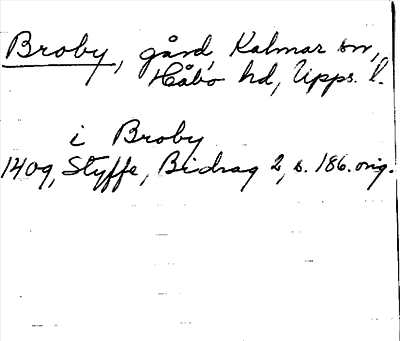 Broby, gård, Kalmar sn,
Håbo hd, Upps. l.
i Broby
1409, Styffe, Bidrag 2, s. 186. orig.